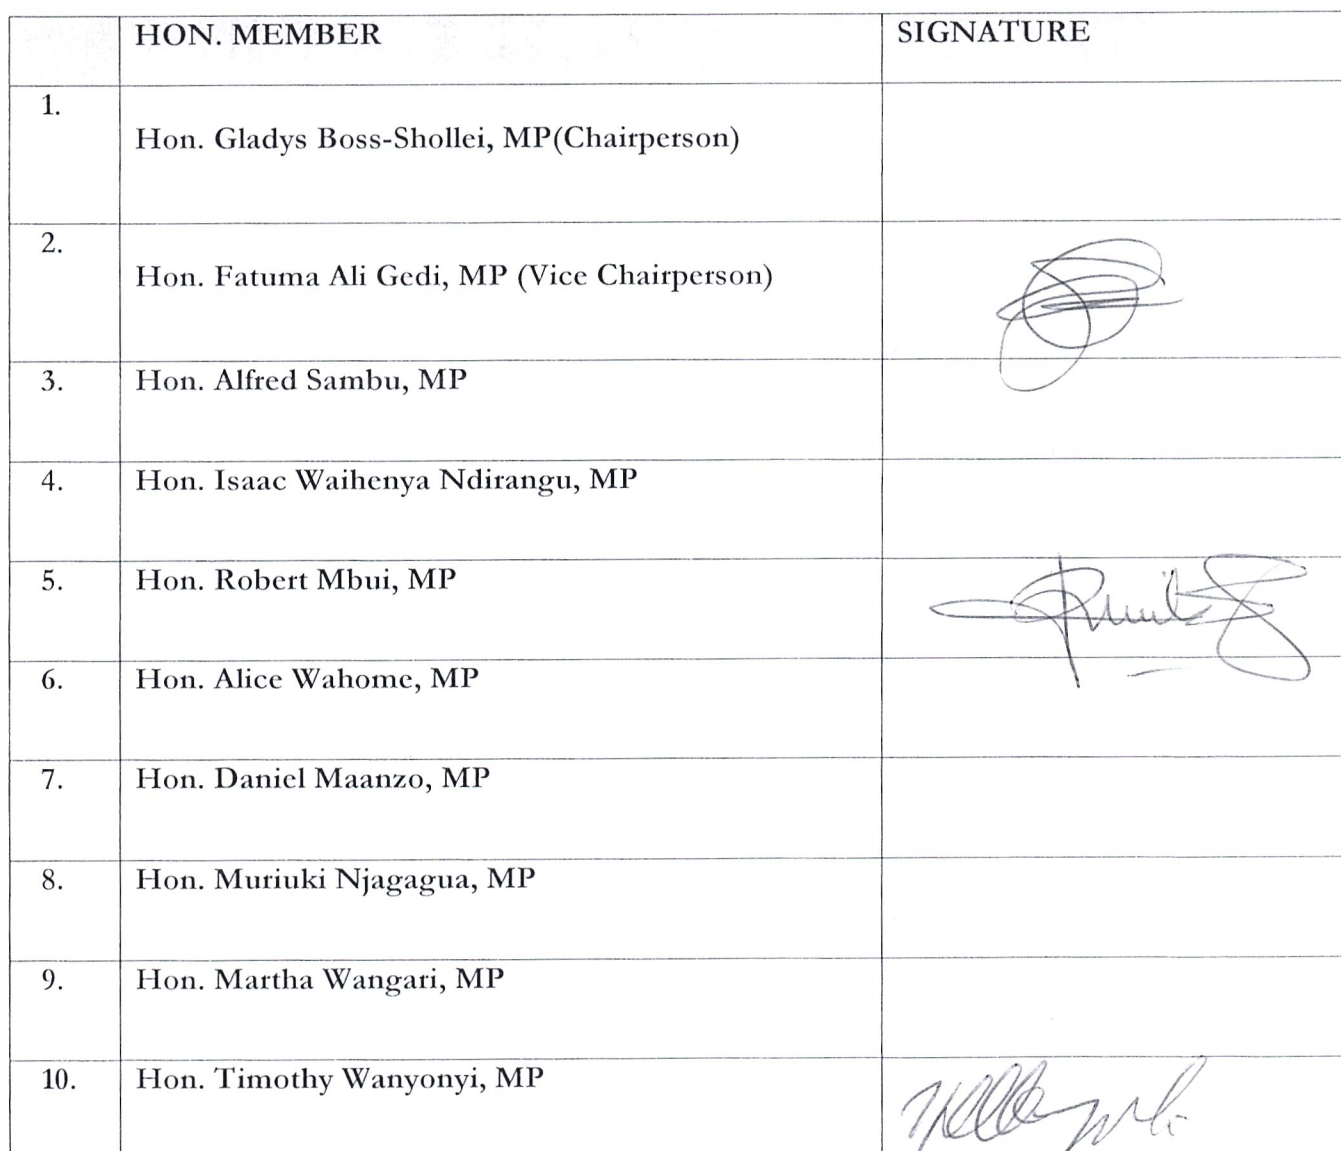 HON. MEMBER SIGNATURE
1. Hon. Gladys Boss-Shollei, MP(Chairperson)
2. Hon. Fatuma Ali Gedi, MP (Vice Chairperson)
3. Hon. Alfred Sambu, MP
4. Hon. Isaac Waihenya Ndirangu, MP
5. Hon. Robert Mbui, MP
6. Hon. Alice Wahome, MP
7. Hon. Daniel Maanzo, MP
8. Hon. Muriuki Njagagua, MP
9. Hon. Martha Wangari, MP
10. Hon. Timothy Wanyonyi, MP